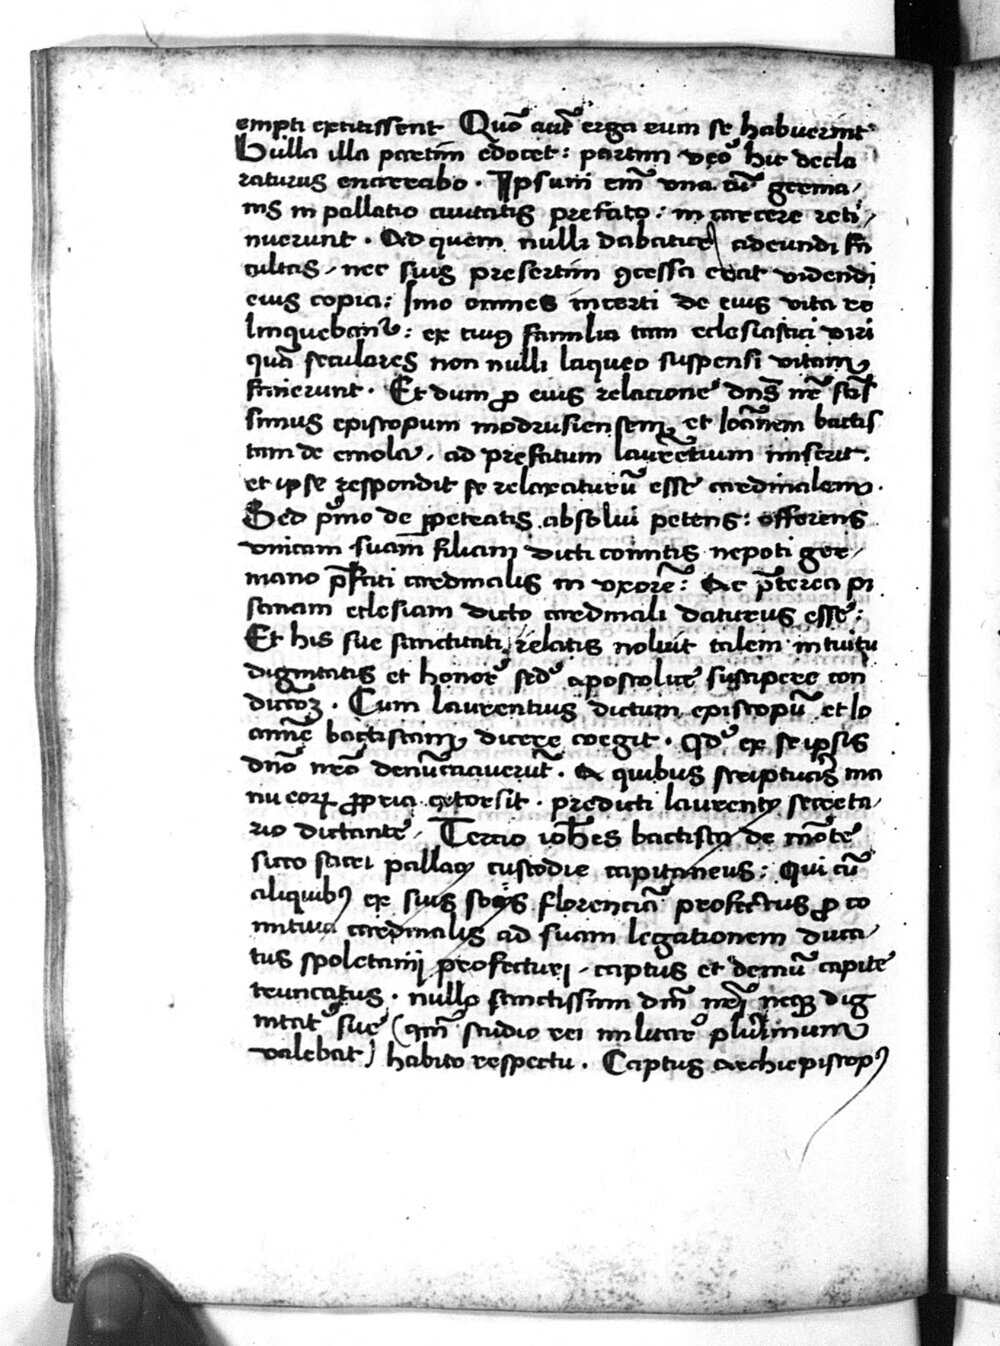 empti extitissent Quō aut̄ erga eum se habuerint
bulla illa partim edocet : partim ūo hic decla
raturus enarrabo . Ipsum em̄ una cū germa/
nis in pallatio civitatis prefato : in carcere reti/
nuerunt . Ad quem nulli dabatur adeundi fa
cultas / nec suis presertim ꝯcessa erat videndi
eius copia : Imo omnes incerti de eius vita re
linquebant᷑ : ex cuiꝰ familia tam eclesiastici viri
quā seculares non nulli laqueo suspensi vitam
finierunt . Et dum ꝓ eius relacione dn̄s nr̄ sc̄tis
simus episcopum modrusiensem et Ioānem baptis
tam de emola , ad prefatum laurētium miserit .
et ipse respondit se relaxaturū esse cardinalem .
Sed pͥmo de ꝑpetratis absolui petens : offerens
unicam suam filiam dicti comitis nepoti ger/
mano pͣfati cardinalis in uxorē : Ac p̄terea pi
sanam eclesiam dicto cardinali daturus esse :
Et his sue sanctitati relatis noluit talem intuitu
dignitatis et honoris sedis apostolice suscipere con
dic̄coꝫ . Cum laurentius dictum episcopū et Io
annē baptistam dicere coegit . qd̓ ex se ipsis
dn̄o nr̄o denūciaverūt . A quibus scripturas ma
nu eoꝝ ꝓpria extorsit . predicti laurentij secreta/
rio dictante / Tercio ioh̄es baptista de mōte
sicco sacri pallacij custodie capitaneus : Qui cū
aliquibꝰ ex suis socijs florenciā profectus ꝓ co
mitiva cardinalis ad suam legationem duca/
tus spoletanij profecturi / captus et demū capite
truncatus . nullo sanctissimi dn̄i nr̄i neqꝫ dig
nitat̓ sue ( qm̄ studio rei militar̓ plurimum
valebat ) habito respectu . Captus archiepiscopꝰ